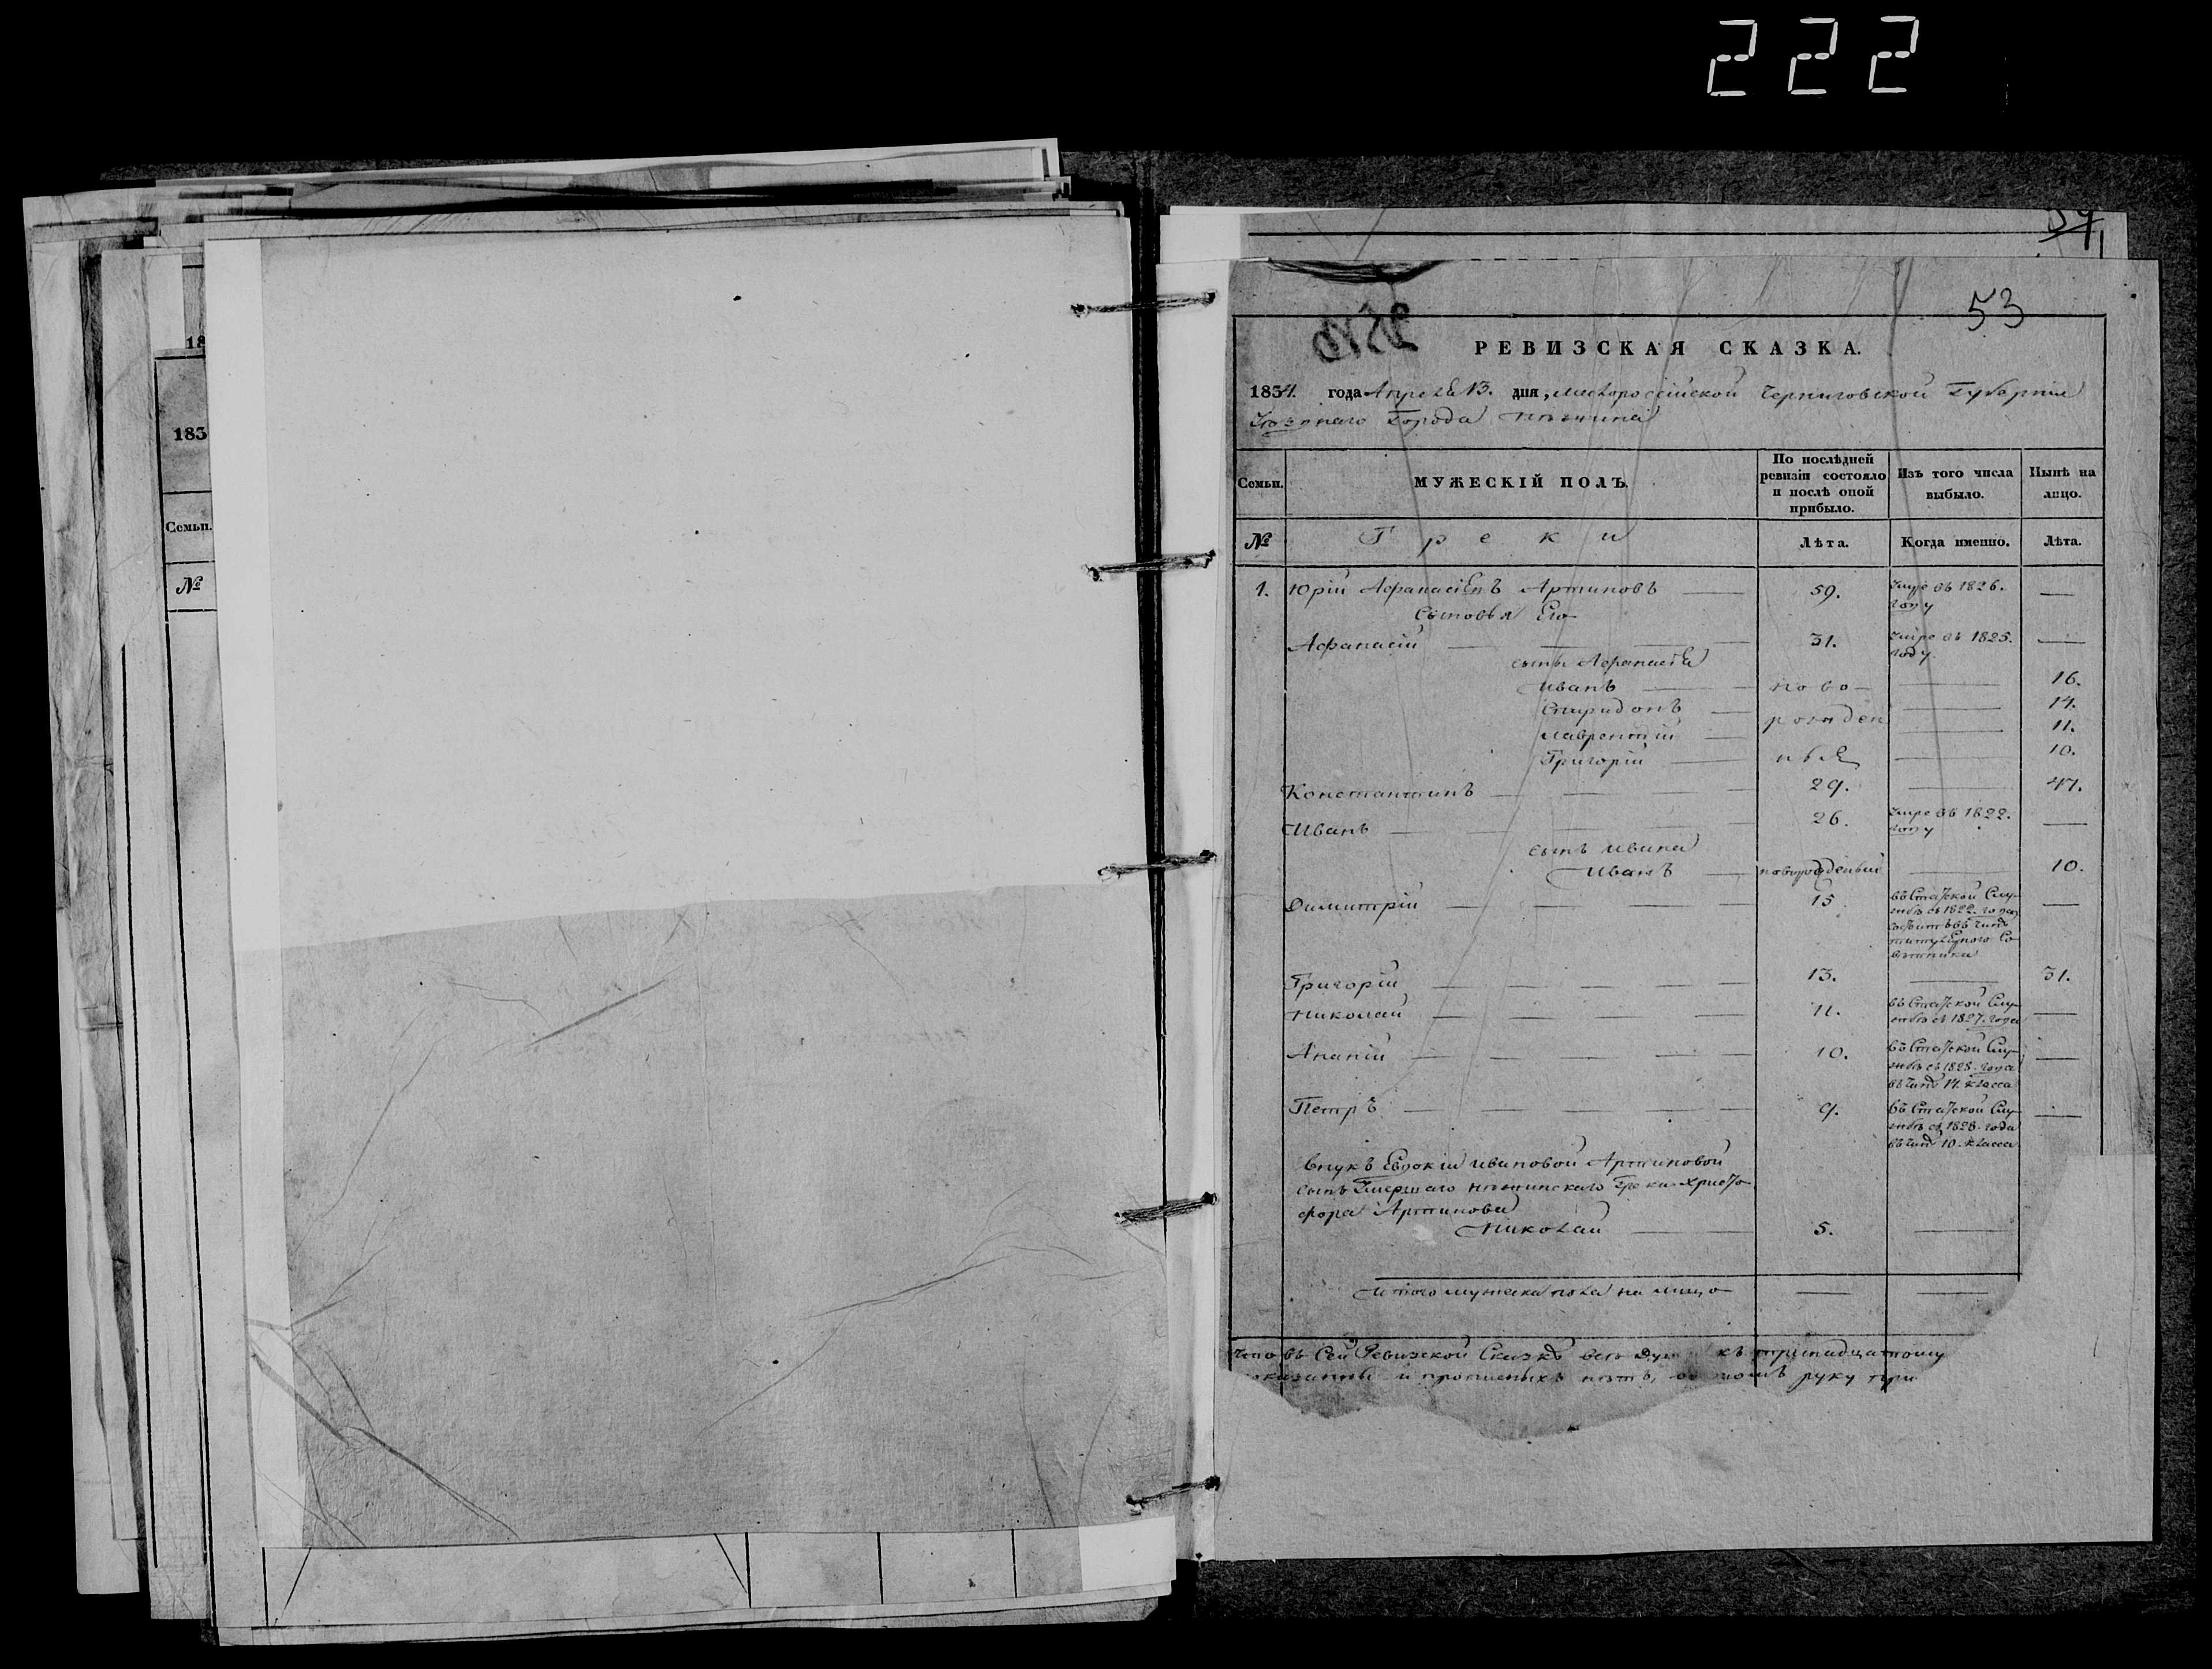 222
54
53
РЕВИЗСКАЯ СКАЗКА.
1834. года Апреля 13. дня, Малороссійской Черниговской Губерніи
Уезднаго Города Нѣжина
18
183
Семьи.
№
Семьи.
МУЖЕСКІЙ ПОЛЪ.
По послѣдней ревизіи состояло и послѣ оной прибыло.
Изъ того числа выбыло.
Нынѣ на лицо.
№
Греки
Лѣта.
Когда именно.
Лѣта.
1. Юрій Афанасіевъ Артиновъ — 59. Умре въ 1826. году —
Сыновья Его
Афанасій — 31. Умре въ 1825. году —
сыны Афанасія
Иванъ — ново- — 16.
Спиридонъ — рожден — 14.
Лаврентій — — 11.
Григорій — ныя — 10.
Константинъ — 29. — 47.
Иванъ — 26. Умре въ 1822. году —
сынъ Ивана
Иванъ — новорожденный — 10.
Димитрій — 15 въ Статской Слу-
жбѣ съ 1822. года
состоитъ въ чинѣ
титулярного Со-
вѣтника —
Григорій — 13. — 31.
Николай — 11. въ Статской Слу-
жбѣ съ 1827. года —
Ананій — 10. въ Статской Слу-
жбѣ съ 1828. года
въ чинѣ 14. класса —
Петръ — 9. въ Статской Слу-
жбѣ съ 1828. года
въ чинѣ 10. класса —
Внукъ Евдокіи Ивановой Артиновой
сынъ Умершаго нѣжинскаго Грека Христо-
фора Артинова
Николай — 5. —
Итого мужеска пола на лицо — —
Что въ Сей Ревизской Сказкѣ всѣ Душ къ тринадцатому
оказанны и прописныхъ нѣтъ, въ томъ руку при